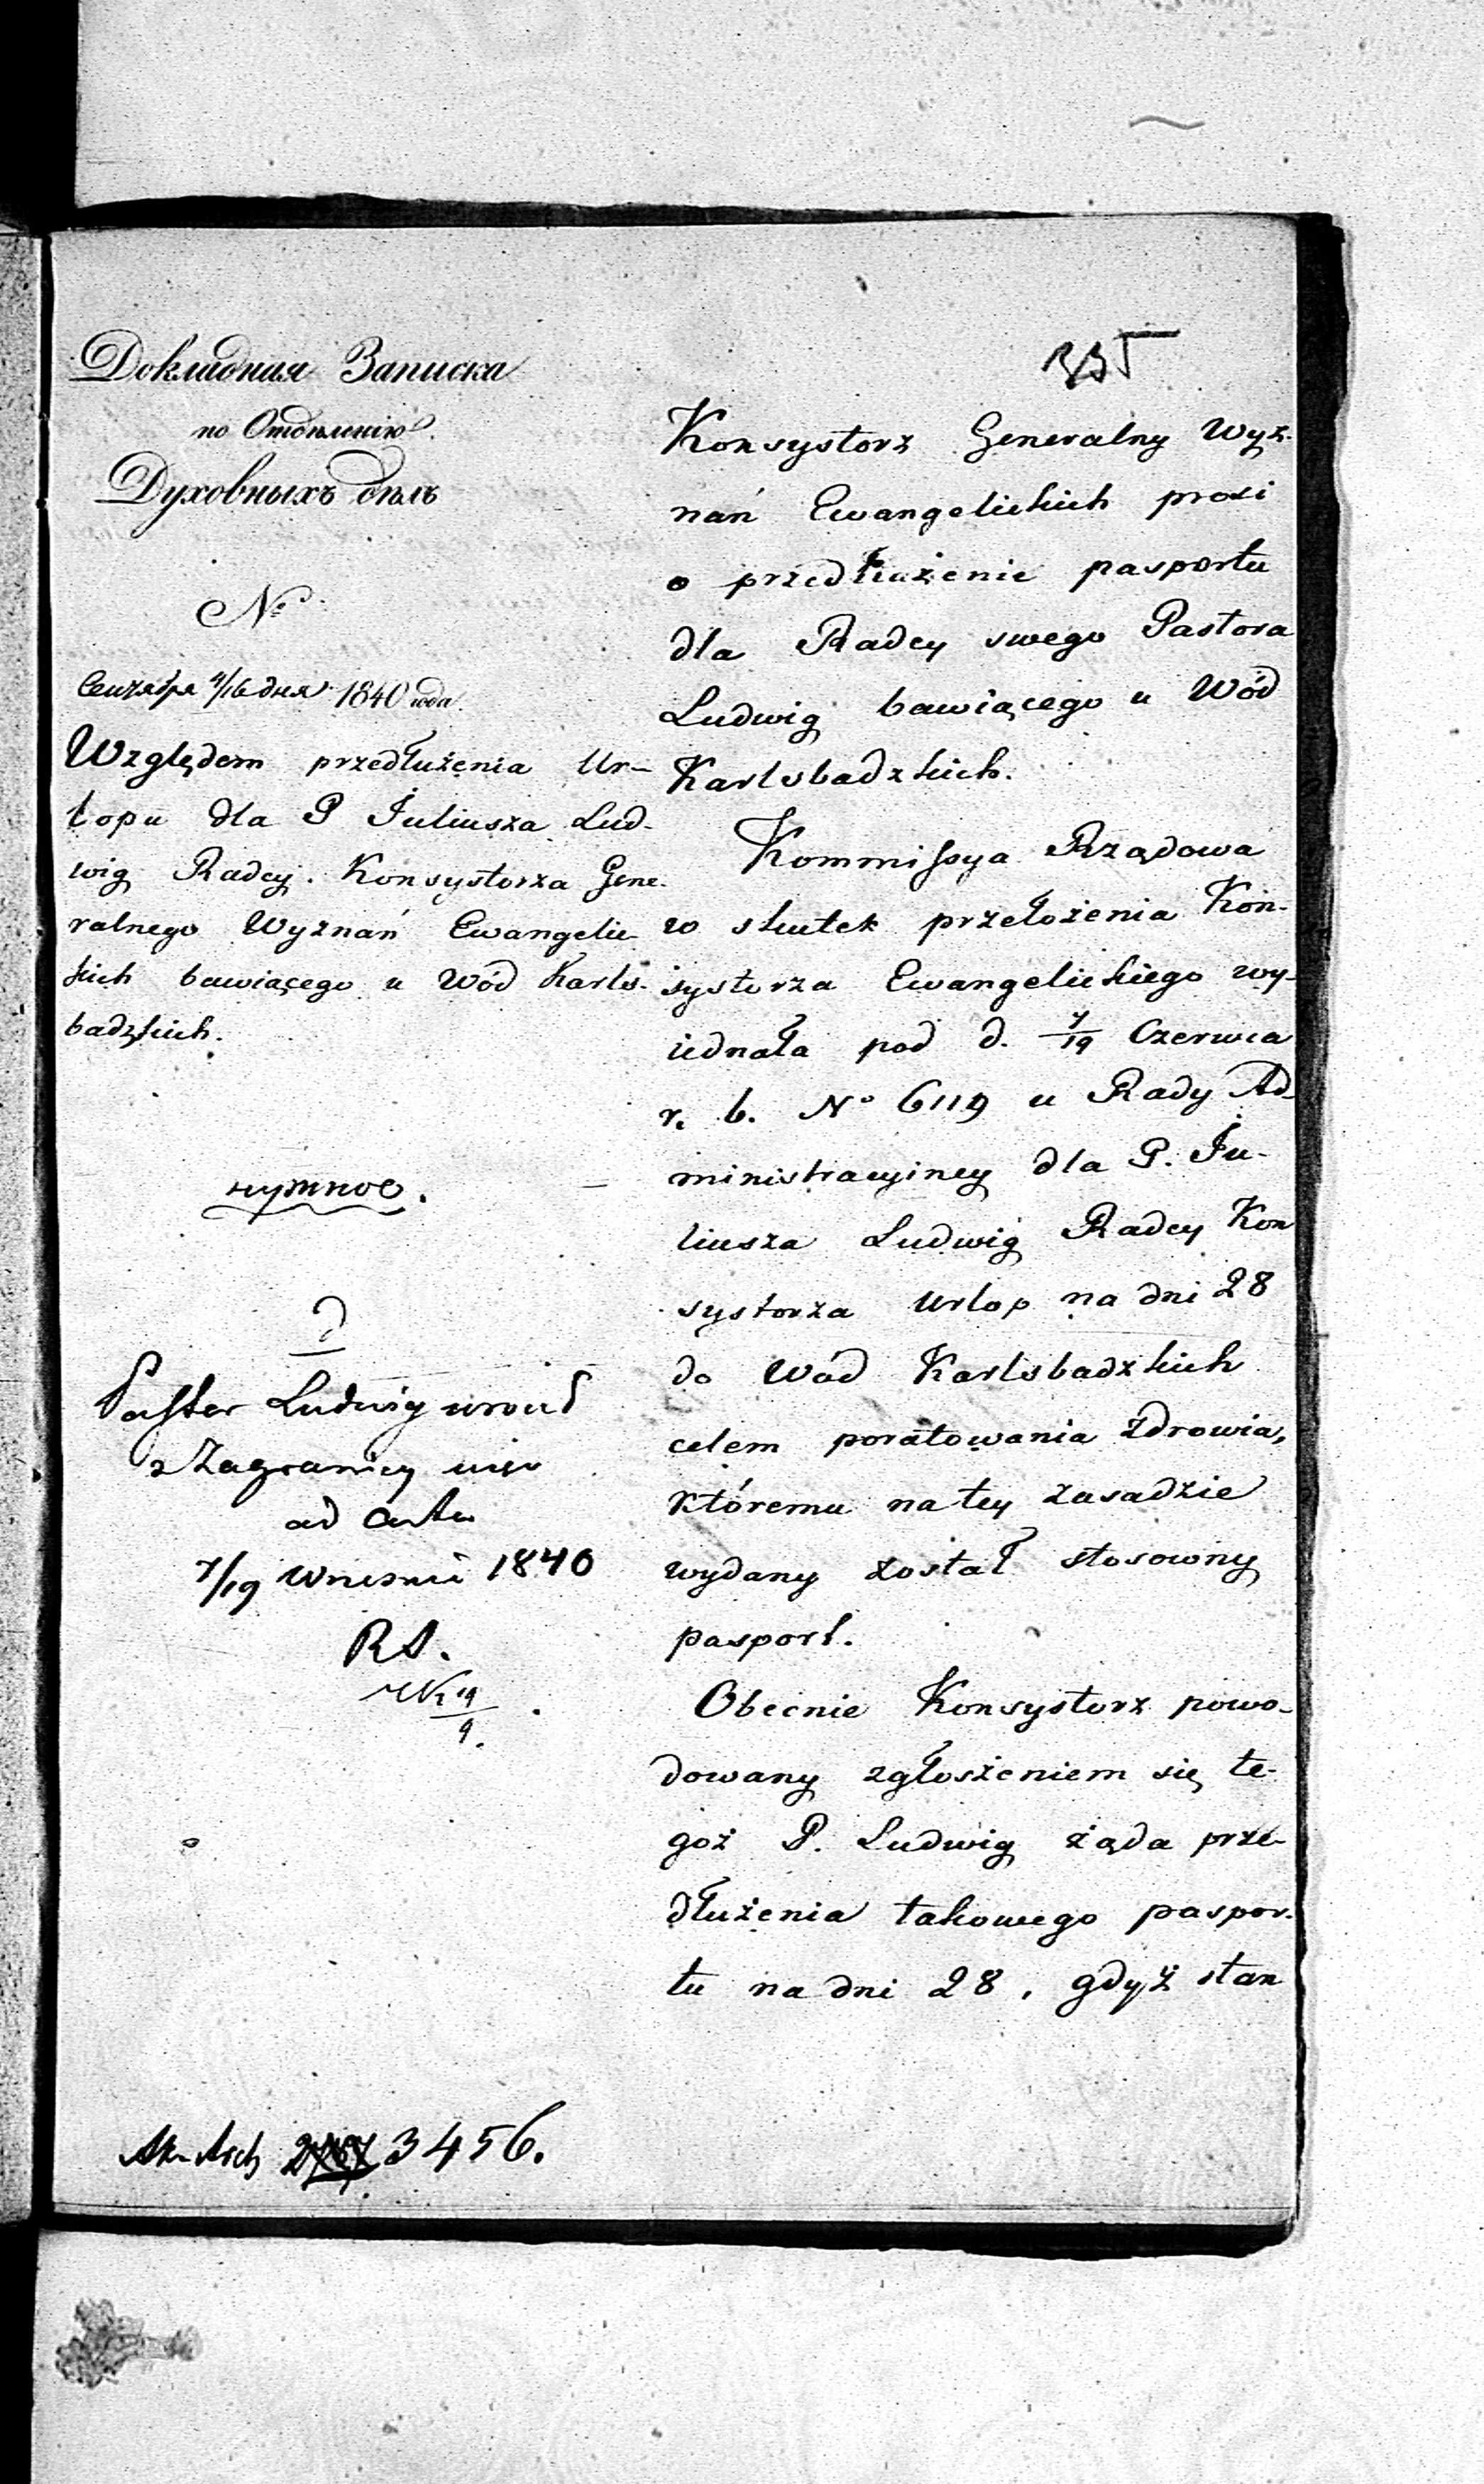 Докладная Записка
по Отдѣленію
Духовныхъ дѣлъ
№
Сентября 4/16 дня 1840 года.
Względem przedłużenia Ur-
lopu dla P Juliusza Lud-
wig Radcy Konsystorza Gene-
ralnego Wyznań Ewangelic-
kich bawiącego u Wód Karls-
badzkich.
нужное.
Pastor Ludwig wrócił
z Zagranicy więc
ad acta
7/19 Wrześni 1840
RS.
19/9.
3456.
335
Konsystorz Generalny Wyz-
nań Ewangelickich prosi
o przedłużenie pasportu
dla Radcy swego Pastora
Ludwig bawiącego u Wód
Karlsbadzkich.
Kommissya Rządowa
w skutek przełożenia Kon-
systorza Ewangelickiego wy-
iednała pod d. 7/19 Czerwca
r. b. No 6119 u Rady Ad-
ministracyiney dla P. Ju-
liusza Ludwig Radcy Kon
systorza Urlop na dni 28
do Wód Karlsbadzkich
celem poratowania zdrowia,
któremu na tey zasadzie
wydany został stosowny
pasport.
Obecnie Konsystorz powo-
dowany zgłoszeniem się te-
goż P. Ludwig żąda prze-
dłużenia takowego paspor-
tu na dni 28, gdyż stan